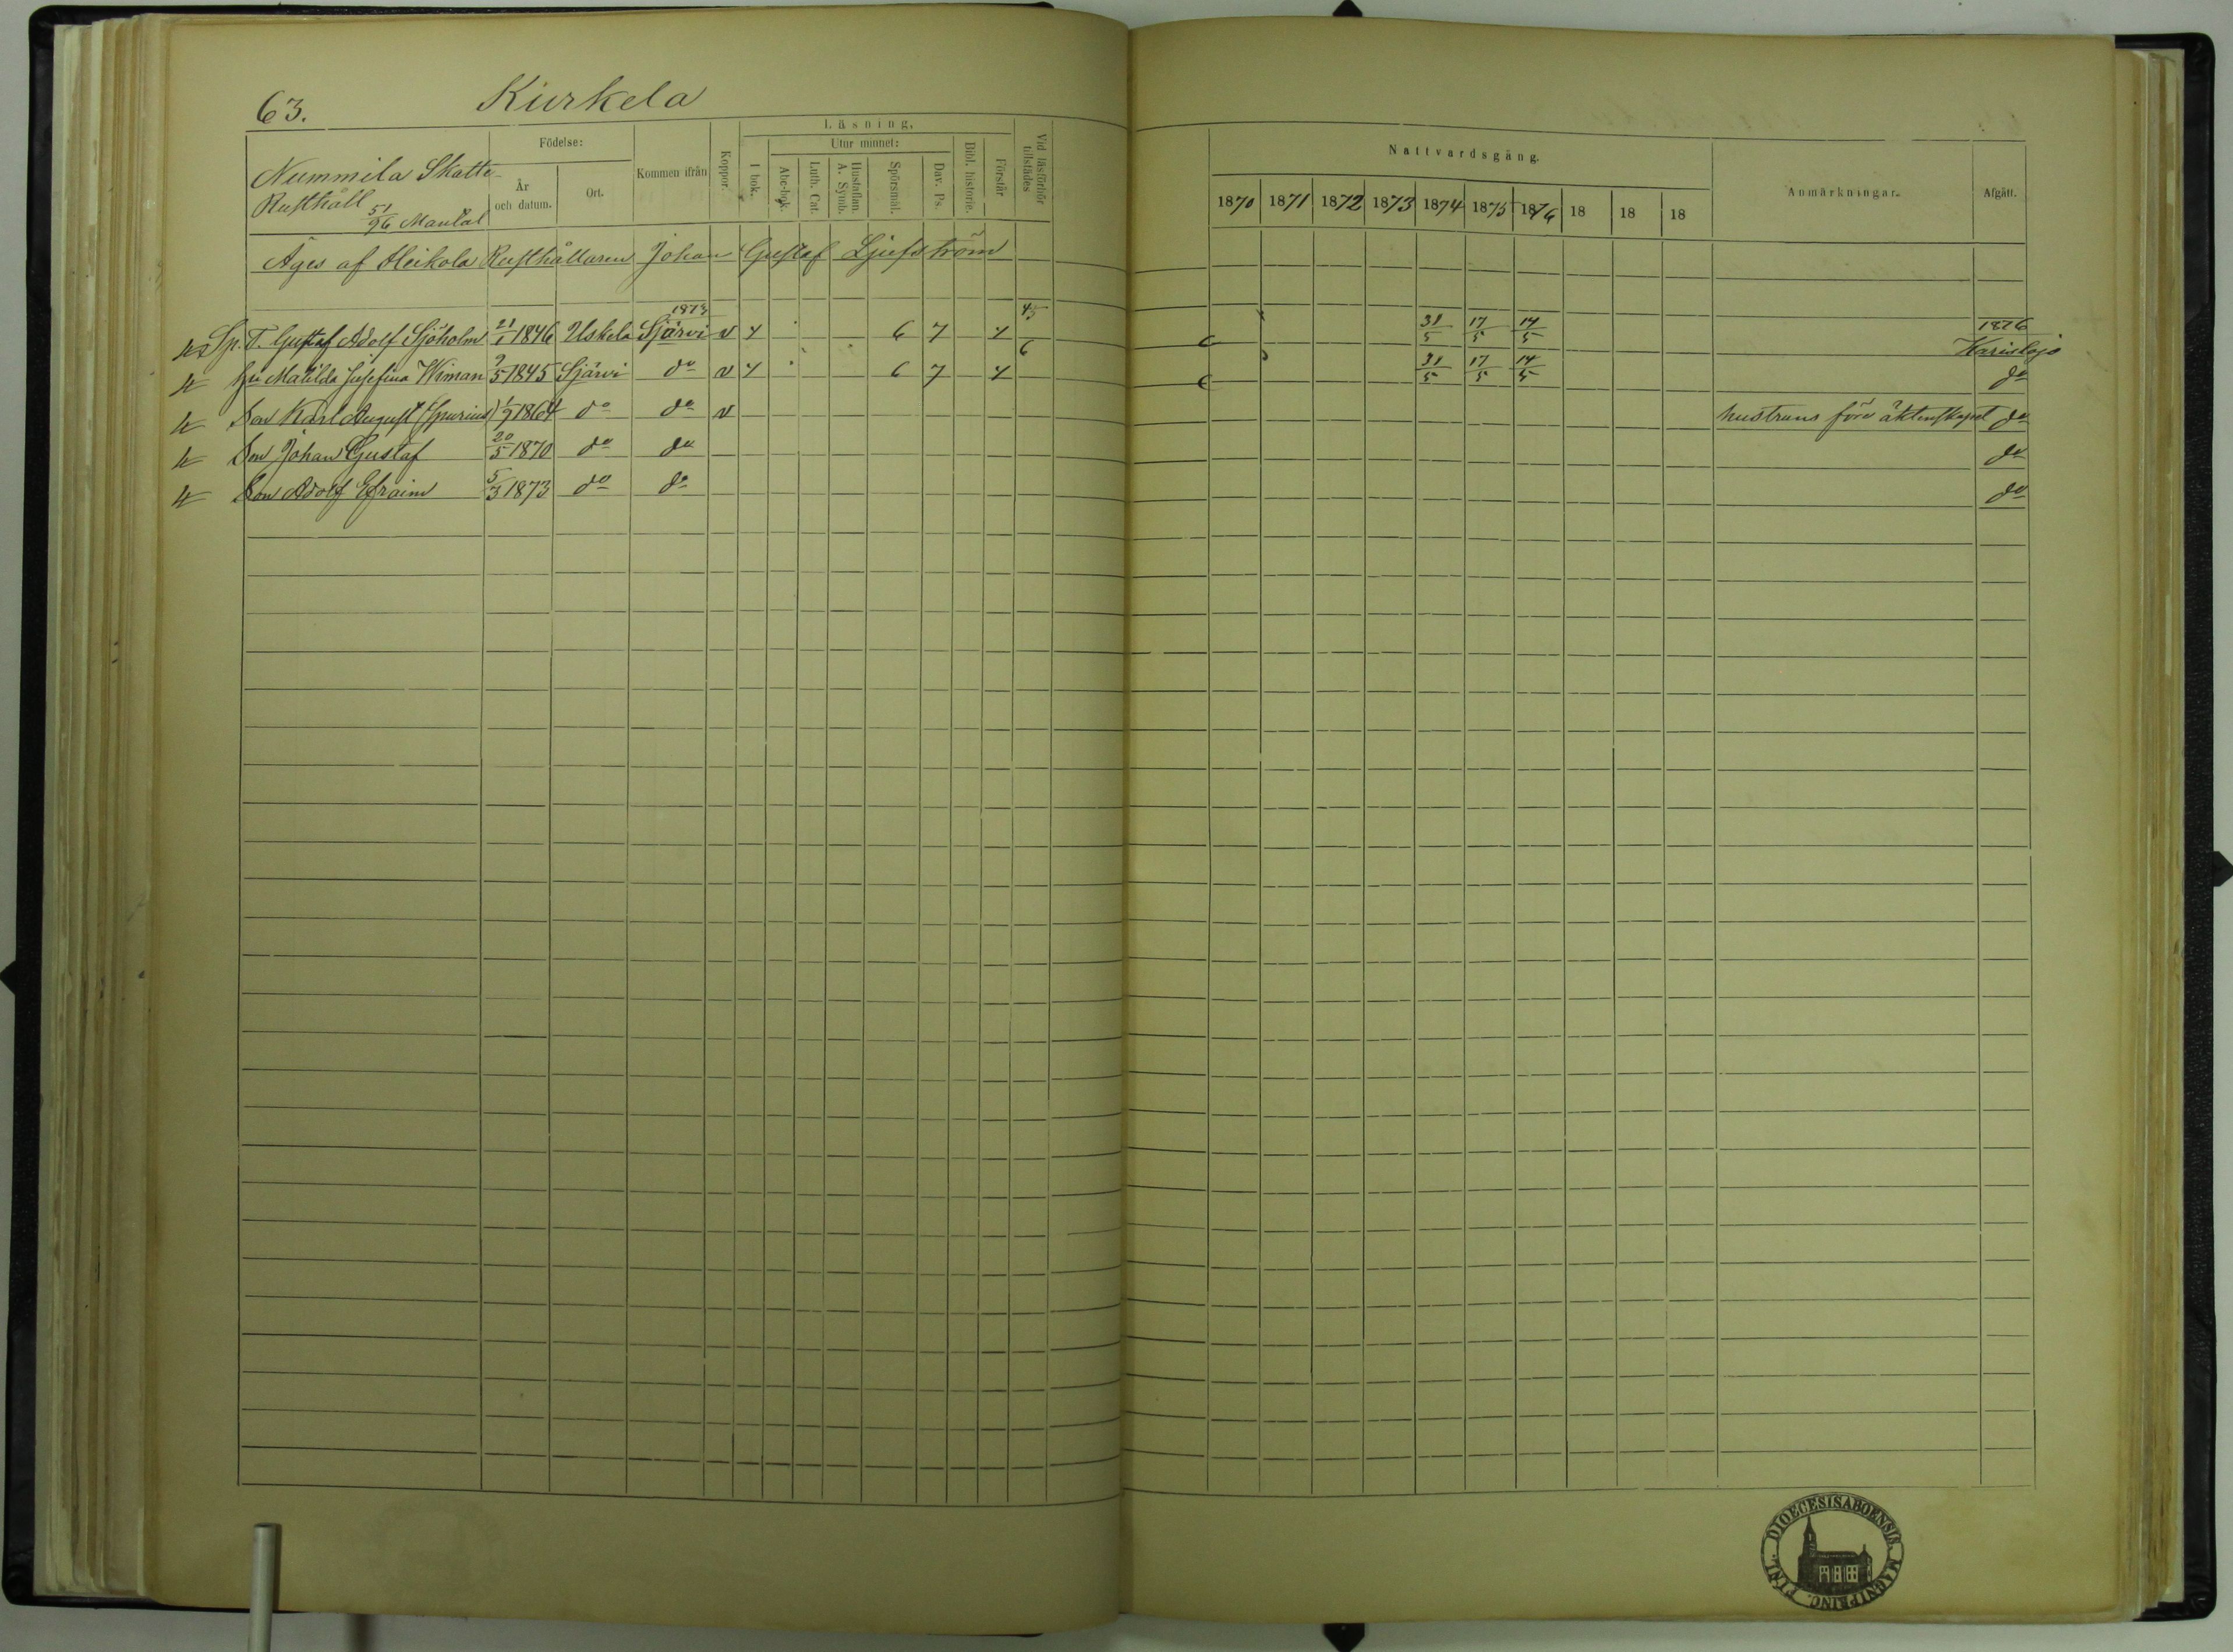 63. Kurkela
Nummila Skatte-
Rusthåll
51/96 Mantal
Födelse:
År och datum.
Ort.
Kommen ifrån
Koppor.
Läsning.
I bok.
Utur minnet:
Abc-bok.
Luth. Cat.
Hustaflan. A. Symb.
Spörsmål.
Dav. Ps.
Bibl. historie.
Förstår
Vid läsförhör tillstädes
Nattvardsgång.
1870 1871 1872 1873 1874 1875 1876 18 18 18
Anmärkningar.
Afgått.
Äges af Heikola Rusthållaren Johan Gustaf Ljufström
1873 45 1876
Sp. T. Gustaf Adolf Sjöholm 21/1 1846 Uskela Sjärvi v 6 7 31/5 17/5 14/5 Karislojo
6
Hu Matilda Josefina Wiman 9/5 1845 Sjärvi do v 6 7 31/5 17/5 14/5 do
Son Karl August (spurius) 1/9 1864 do do v hustruns före äktenskapet do
Son Johan Gustaf 20/5 1870 do do do
Son Adolf Efraim 5/3 1873 do do do
FINL. DIOECESIS ABOENSIS. MAGNI PRINC.